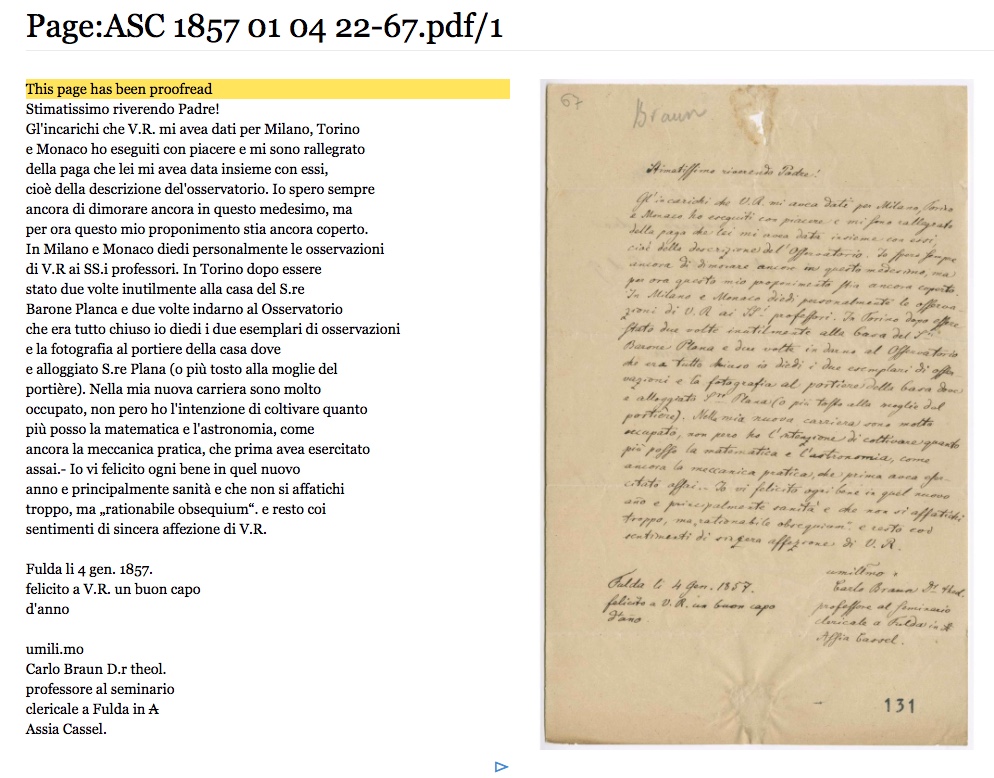 Page:ASC 1857 01 04 22-67.pdf/1
This page has been proofread
Stimatissimo riverendo Padre!
Gl'incarichi che V.R. mi avea dati per Milano, Torino
e Monaco ho eseguiti con piacere e mi sono rallegrato
della paga che lei mi avea data insieme con essi,
cioè della descrizione del'osservatorio. Io spero sempre
ancora di dimorare ancora in questo medesimo, ma
per ora questo mio proponimento stia ancora coperto.
In Milano e Monaco diedi personalmente le osservazioni
di V.R ai SS.i professori. In Torino dopo essere
stato due volte inutilmente alla casa del S.re
Barone Planca e due volte indarno al Osservatorio
che era tutto chiuso io diedi i due esemplari di osservazioni
e la fotografia al portiere della casa dove
e alloggiato S.re Plana (o più tosto alla moglie del
portière). Nella mia nuova carriera sono molto
occupato, non pero ho l'intenzione di coltivare quanto
più posso la matematica e l'astronomia, come
ancora la meccanica pratica, che prima avea esercitato
assai.- Io vi felicito ogni bene in quel nuovo
anno e principalmente sanità e che non si affatichi
troppo, ma „rationabile obsequium“. e resto coi
sentimenti di sincera affezione di V.R.
Fulda li 4 gen. 1857.
felicito a V.R. un buon capo
d'anno
umili.mo
Carlo Braun D.r theol.
professore al seminario
clericale a Fulda in A
Assia Cassel.
67
Braun
Stimatissimo riverendo Padre!
Gl'incarichi che V.R. mi avea dati per Milano, Torino
e Monaco ho eseguiti con piacere e mi sono rallegrato
della paga che lei mi avea data insieme con essi,
cioè della descrizione del'Osservatorio. Io spero sempre
ancora di dimorare ancora in questo medesimo, ma
per ora questo mio proponimento stia ancora coperto.
In Milano e Monaco diedi personalmente le osserva-
zioni di V.R ai SS.i professori. In Torino dopo essere
stato due volte inutilmente alla Casa del S.re
Barone Plana e due volte in darno al Osservatorio
che era tutto chiuso io diedi i due esemplari di osser-
vazioni e la fotografia al portiere della casa dove
e alloggiato S.re Plana (o più tosto alla moglie del
portière). Nella mia nuova carriera sono molto
occupato, non pero ho l'intenzione di coltivare quanto
più posso la matematica e l'astronomia, come
ancora la meccanica pratica, che prima avea eser-
citato assai.- Io vi felicito ogni bene in quel nuovo
año e principalmente sanità e che non si affatichi
troppo, ma „rationabile obsequium“. e resto coi
sentimenti di sincera affezione di V. R.
Fulda li 4 Gen. 1857.
felicito a V.R. un buon capo
d'año
umilimo
Carlo Braun Dr. theol.
professore al seminario
clericale a Fulda in A
Assia Cassel.
131